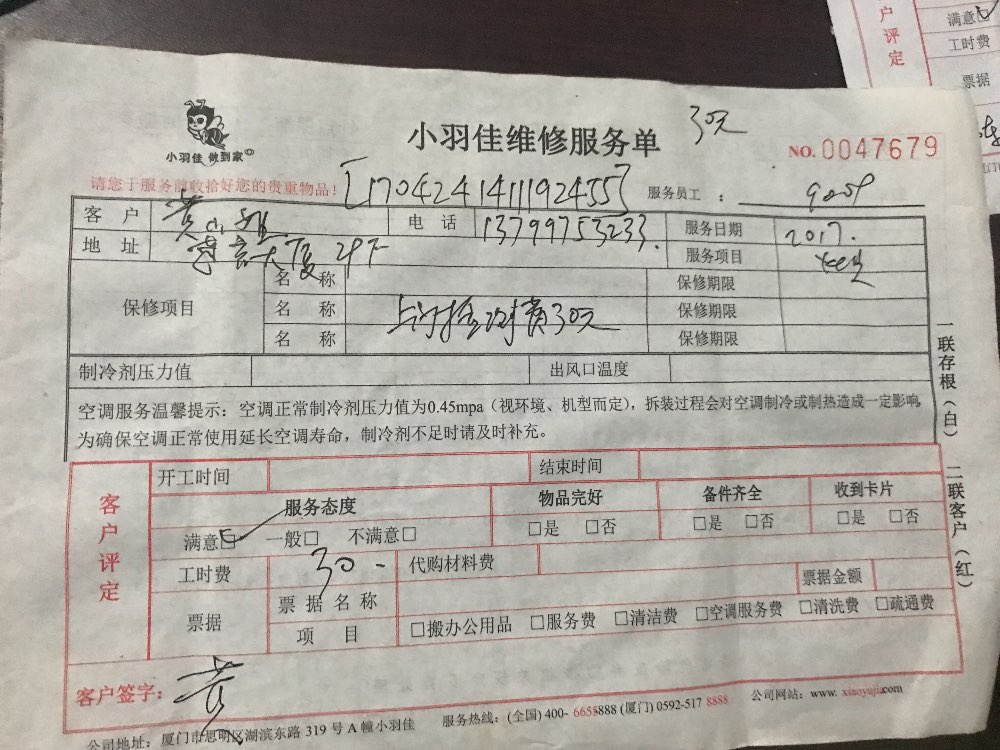 小羽佳 做到家
小羽佳维修服务单
30元
NO. 0047679
请您于服务前收拾好您的贵重物品!
[170424141119 2455]
服务员工 :
客 户 黄小姐
电 话 13799753233.
服务日期 2017.
地 址
服务项目
保修项目
名 称 保修期限
名 称 上门检测费30元 保修期限
名 称 保修期限
制冷剂压力值 出风口温度
空调服务温馨提示:空调正常制冷剂压力值为0.45mpa(视环境、机型而定),拆装过程会对空调制冷或制热造成一定影响
为确保空调正常使用延长空调寿命,制冷剂不足时请及时补充。
一联存根(白) 二联客户(红)
客户评定
开工时间 结束时间
服务态度 物品完好 备件齐全 收到卡片
满意□ 一般□ 不满意□ □是 □否 □是 □否 □是 □否
工时费 30 - 代购材料费
票据 票据名称 票据金额
项 目 □搬办公用品 □服务费 □清洁费 □空调服务费 □清洗费 □疏通费
客户签字: 黄
公司地址:厦门市思明区湖滨东路 319 号 A 幢小羽佳 服务热线:(全国) 400- 6655888 (厦门) 0592-517 8888 公司网站:www. xiaoyujia.com
户评定
满意□
工时费
票据